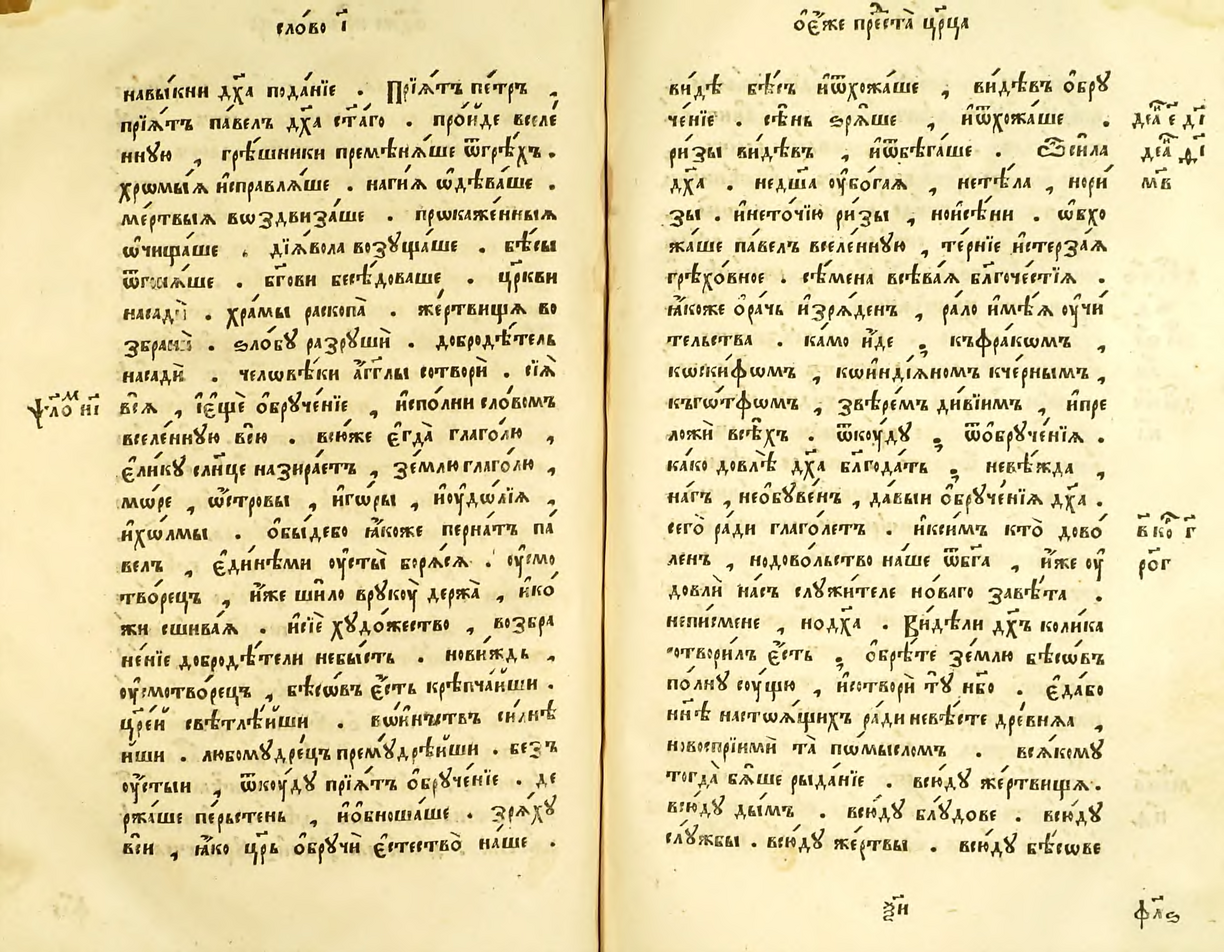 сло́во і҃
навы́кни дх҃а пода́нїе . Прїѧ́тъ пе́тръ ,
прїѧ́тъ па́велъ дх҃а ст҃а́го . про́йде вселе́
нну́ю , грѣ́шники премѣнѧ́ше ѿгрѣ́хъ .
хрѡмы́ѧ и҆справлѧ́ше . наги́ѧ ѡ҆дѣва́ше .
ме́ртвыѧ вѡздвиза́ше . прѡкаже́нныѧ
ѡ҆чища́ше . дїѧ́вола возꙋща́ше . бѣ́сы
ѿгонѧ́ше . бг҃ови бесѣ́доваше . цр҃кви
насади̂ . хра́мы раскопа̀ . же́ртвищѧ во
збрани̂ . ѕло́бꙋ разрꙋши̂ . добродѣ́тель
насади̂ . челѡвѣ́ки а҆́гг҃лы сотвори̂ . сїѧ̂
всѧ̂ , і҆є҆щѐ ѻ҆брꙋче́нїе , и҆спо́лни сло́вомъ
ѱло́м н҃і
вселе́ннꙋю всю̂ . всю́же є҆гда̀ глаго́лю ,
є҆ли́кꙋ сл҃нце назира́етъ , зе́млю глаго́лю ,
мѡ́ре , ѡ҆́стровы , и҆гѡ́ры , и҆оу҆дѡ́лїѧ ,
и҆хѡ́лмы . ѻ҆бы́дебо ꙗ҆́коже перна́тъ па́
велъ , є҆ди́нѣми оу҆сты̂ борѧ́сѧ . оу҆смо
тво́рецъ , и҆́же ши́ло врꙋкоу̂ держа̀ , и҆ко́
жи сшива́ѧ . и҆сїѐ хꙋдо́жество , возбра
не́нїе добродѣ́тели небы́сть . нови́ждь ,
оу҆смотво́рецъ , бѣ́сѡвъ є҆́сть крѣпча́йши .
цр҃е́й свѣтлѣ́йши . вѡ́инъствъ си́лнѣ
йши . любомꙋ́дрецъ премꙋдрѣ́йши . безъ
оу҆́стыи , ѿкоу́дꙋ прїѧ́тъ ѻ҆брꙋче́нїе . де
ржа́ше пе́рьстень , и҆ѻ҆бноша́ше . зрѧ́хꙋ
вси , ꙗ҆́ко цр҃ь ѻ҆брꙋчѝ є҆стество̀ на́ше .
ѻ҆є҆́же пре́ста̀ цр҃ца
ви́дѣ бѣ́съ и҆ѿхожа́ше , ви́дѣвъ ѻ҆брꙋ
че́нїе . сѣ́нь ѕрѧ́ше , и҆ѿхожа́ше .
деѧ҃ е д҃і
ри́зы ви́дѣвъ , и҆ѿбѣга́ше . Ѽ си́ла
деѧ҃ ѳ҃і
дх҃а . недш҃а оу҆бо́гаѧ , нетѣ́ла , нори́
м҃в
зы . и҆нето́чїю ри́зы , ноисѣ́ни . ѡ҆вхо
жа́ше па́велъ вселе́ннꙋю , те́рнїе и҆стерза́ѧ
грѣхо́вное . сѣ́мена всѣва́ѧ бл҃гоче́стїѧ .
ꙗ҆́коже ѻ҆ра́чь и҆зрѧ́денъ , ра́ло и҆мѣ́ѧ оу҆чи́
тельства . ка́мо и҆́де ; къфра́кѡмъ ,
кѡски́фѡмъ , кѡинді́ѧномъ кче́рнымъ ,
къгѡ́тфѡмъ , звѣре́мъ ди́вїимъ , и҆пре
ложѝ всѣ́хъ . ѿкоу́дꙋ ; ѿѻ҆брꙋче́нїѧ .
ка́ко довлѣ̀ дх҃а бл҃года́ть ; невѣ́жда ,
на́гъ , необꙋве́нъ , да́выи ѻ҆брꙋче́нїѧ дх҃а .
сего̀ ра́ди глаго́летъ . и҆ксим̾ кто̀ дово́
в҃ ко҃ г҃
ленъ , нодово́льство на́ше ѿбг҃а , и҆́же оу҆
ро́г
довлѝ на́съ слꙋжи́теле но́ваго завѣ́та .
непи́смене , нодх҃а . Ви́дѣли дх҃ъ коли́ка
сотвори́лъ є҆́сть ; ѻ҆брѣ́те зе́млю бѣ́сѡвъ
по́лнꙋ соу́щю , и҆сотворѝ тꙋ̀ нб҃о . є҆да́бо
нн҃ѣ настоѧ́щихъ ра́ди невѣ́сте дре́внѧѧ ,
новоспрїимѝ та̀ пѡ́мысломъ . всѧ́комꙋ
тогда̀ бѧ́ше рыда́нїе . всю́дꙋ же́ртвищѧ .
всю́дꙋ ды́мъ . всю́дꙋ блꙋ́дове . всю́дꙋ
слꙋ́жбы . всю́дꙋ же́ртвы . всю́дꙋ бѣ́сѡве
ѯ҃и
фл҃ѕ